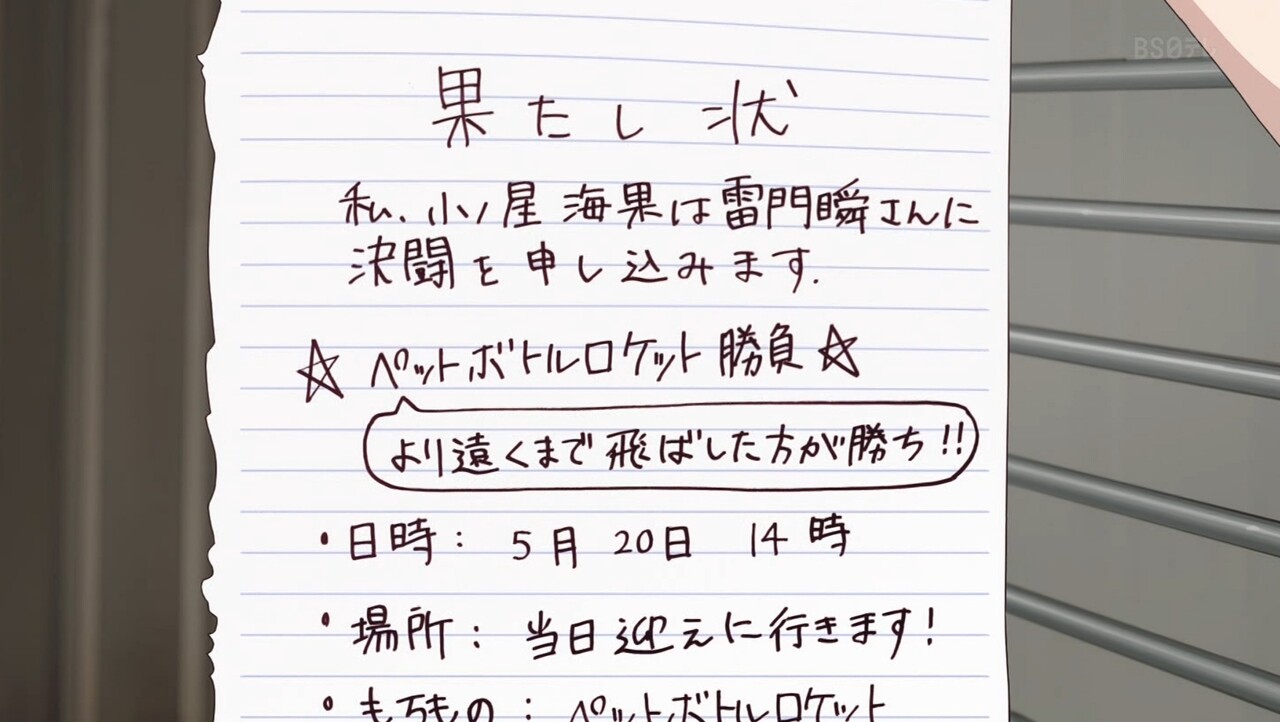 BS日テレ
果たし状
私、小ノ星 海果は雷門瞬さんに
決闘を申し込みます.
☆ ペットボトルロケット勝負☆
より遠くまで飛ばした方が勝ち!!
・日時: 5月 20日 14時
・場所: 当日迎えに行きます!
・もちもの: ペットボトルロケット